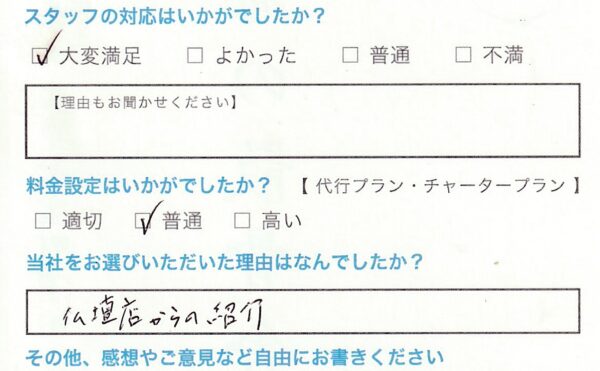 スタッフの対応はいかがでしたか？
☑ 大変満足 □ よかった □ 普通 □ 不満
【理由もお聞かせください】
料金設定はいかがでしたか？ 【 代行プラン・チャータープラン 】
□ 適切 ☑ 普通 □ 高い
当社をお選びいただいた理由はなんでしたか？
仏壇店からの紹介
その他、感想やご意見など自由にお書きください